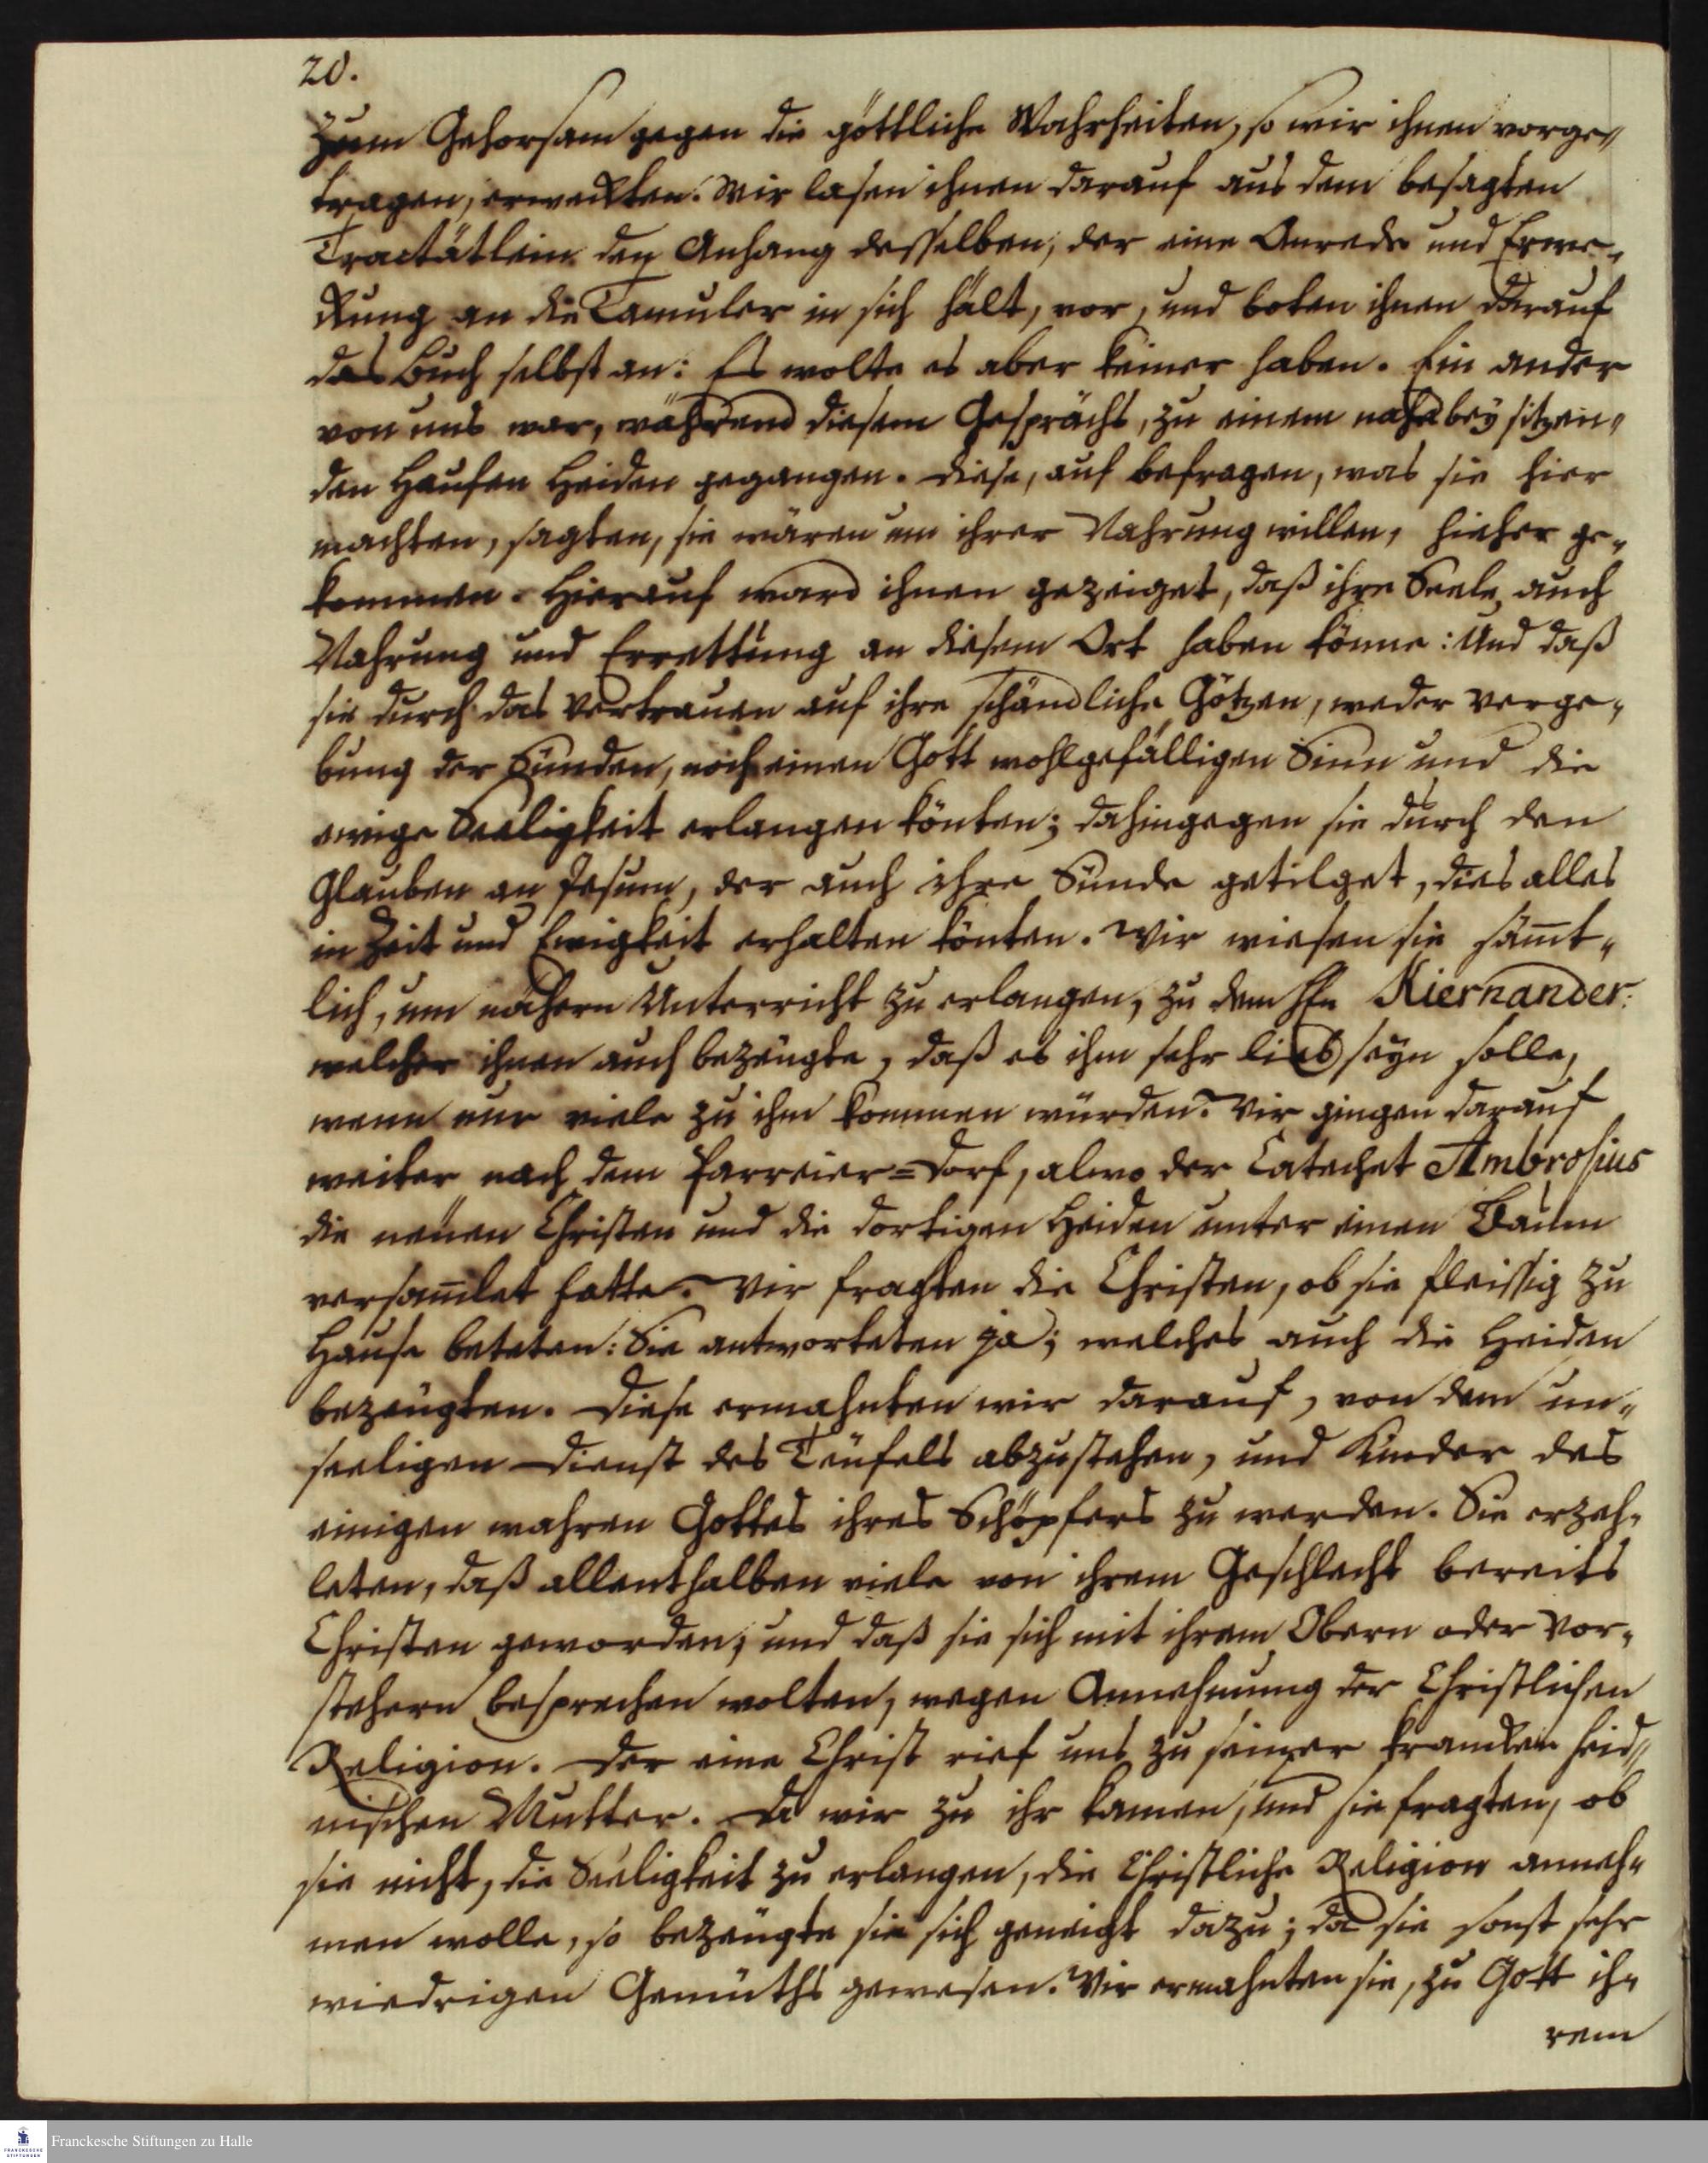 20.
zum Gehorsam gegen die göttliche Wahrheiten, so wir ihnen vorge„
tragen, erweckten. Wir lasen ihnen darauf aus dem besagten
Tractätlein den Anhang desselben, der eine Anrede und Erwe„
ckung an die Tamuler in sich hält, vor, und boten ihnen darauf
das Buch selbst an: Es wolte es aber keiner haben. Ein ander
von uns war, während diesem Gesprächs, zu einem nahe bey sitzen„
den Haufen Heiden gegangen. Diese, auf befragen, was sie hier
machten, sagten, sie wären um ihrer Nahrung willen, hieher ge„
kommen. Hierauf ward ihnen gezeiget, daß ihre Seele auch
Nahrung und Errettung an diesem Ort haben könne: Und daß
sie durch das Vertrauen auf ihre schändliche Götzen, weder Verge„
bung der Sünden, noch einen Gott wohlgefälligen Sinn und die
ewige Seeligkeit erlangen könten; dahingegen sie durch den
Glauben an Jesum, der auch ihre Sünde getilget, dies alles
in Zeit und Ewigkeit erhalten könten. Wir wiesen sie säm̄t„
lich, um nähern Unterricht zu erlangen, zu dem Hn Kiernander:
welcher ihnen auch bezeugte, daß es ihm sehr lieb seyn solle,
wenn nur viele zu ihm kommen würden. Wir gingen darauf
weiter nach dem Parreier=Dorf, alwo der Catechet Ambrosius
die neuen Christen und die dortigen Heiden unter einen Baum
versam̄let hatte. Wir fragten die Christen, ob sie fleissig zu
Hause beteten: Sie antworteten ja; welches auch die Heiden
bezeugten. Diese ermahnten wir darauf, von dem un„
seeligen Dienst des Teufels abzustehen, und Kinder des
einigen wahren Gottes ihres Schöpfers zu werden. Sie erzeh„
leten, daß allenthalben viele von ihrem Geschlecht bereits
Christen geworden; und daß sie sich mit ihrem Obern oder Vor„
stehern besprechen wolten, wegen Annehmung der Christlichen
Religion. Der eine Christ rief uns zu seiner krancken heid„
nischen Mutter. Da wir zu ihr kamen, und sie fragten, ob
sie nicht, die Seeligkeit zu erlangen, die Christliche Religion anneh„
men wolle, so bezeugte sie sich geneigt dazu; da sie sonst sehr
wiedrigen Gemüths gewesen. Wir ermahnten sie, zu Gott ih„
rem
Franckesche Stiftungen zu Halle